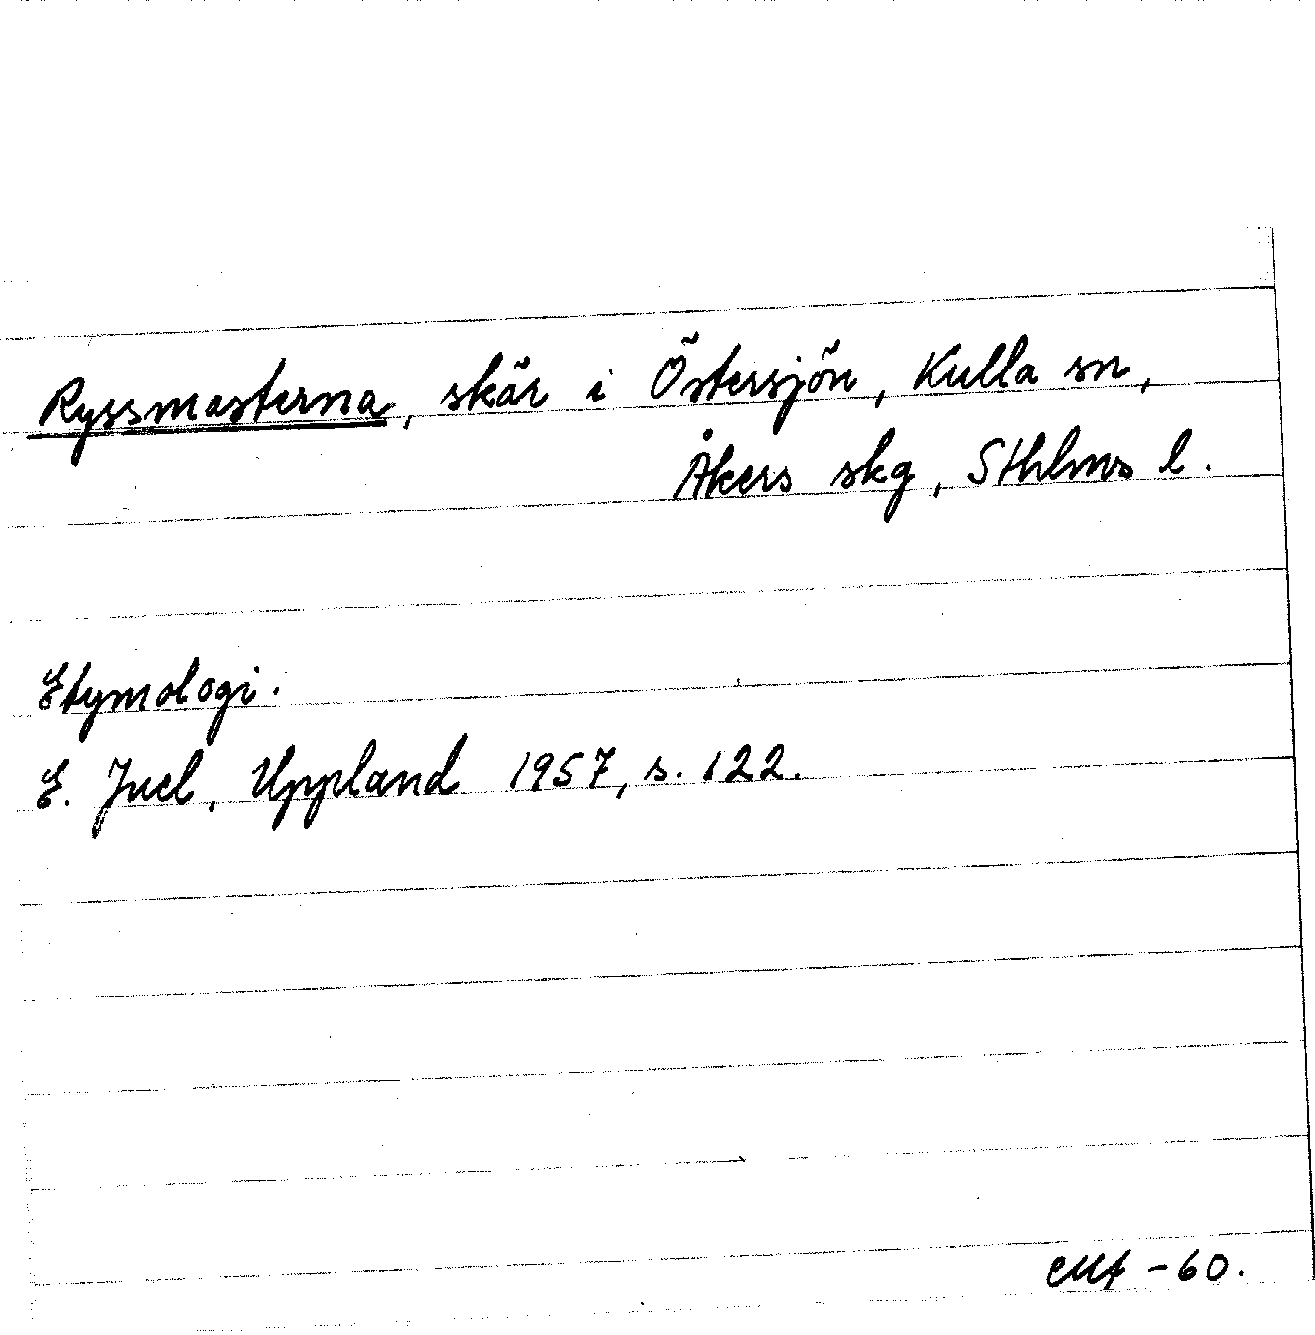 Ryssmasterna, skär i Östersjön, Kulla sn,
Åkers skg, Sthlms l.
Etymologi.
E. Juel, Uppland 1957, s. 122.
-60.